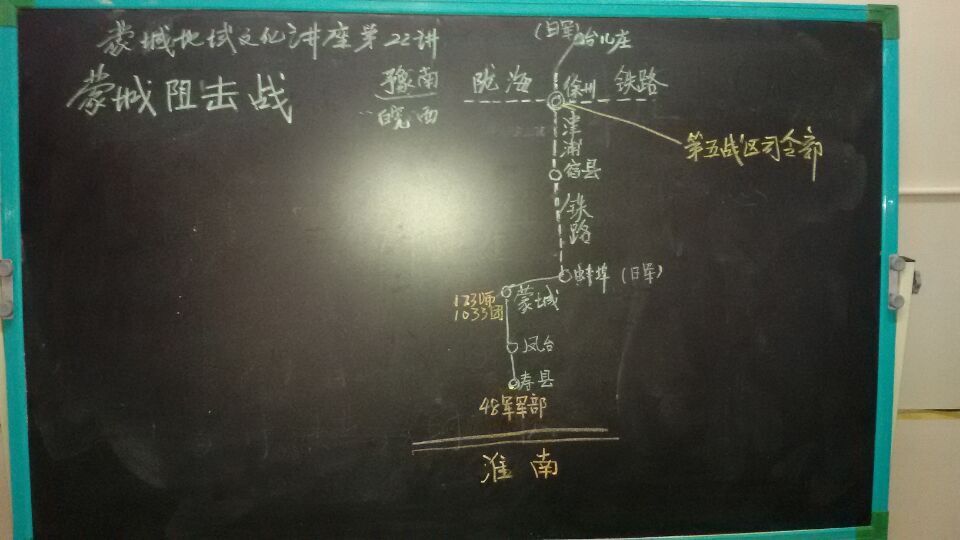 蒙城地域文化讲座第22讲
蒙城阻击战
豫南
皖西
(日军)
台儿庄
陇海
徐州
铁路
第五战区司令部
津浦
宿县
铁路
蚌埠(日军)
173师
1033团
蒙城
凤台
寿县
48军军部
淮南